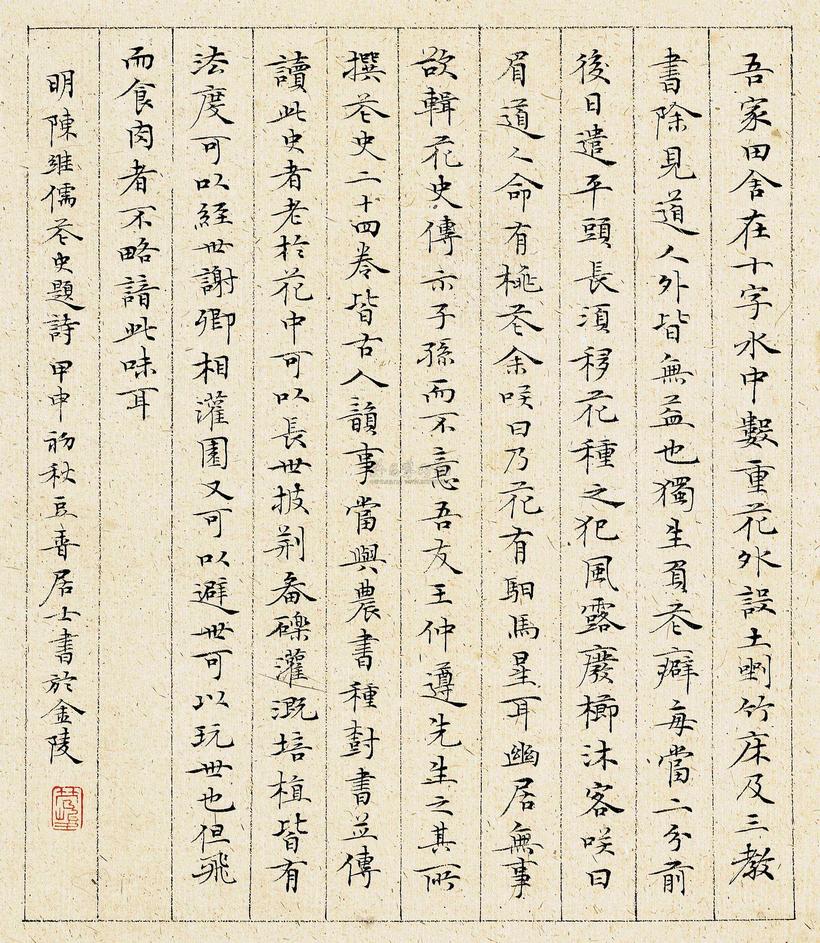 吾家田舍在十字水中數重花外設土剉竹床及三教
書除見道人外皆無益也獨生負芲癖每當二分前
後日遣平頭長須移花種之犯風露廢櫛沐客咲曰
眉道人命有桃芲余咲曰乃花有馹馬星耳幽居無事
欲輯花史傳示子孫而不意吾友王仲遵先生之其所
撰芲史二十四卷皆古人韻事當與農書種樹書並傳
讀此史者老於花中可以長世披荊畚礫灌溉培植皆有
法度可以經世謝卿相灌園又可以避世可以玩世也但飛
而食肉者不略諳此味耳
明陳維儒芲史題詩甲申初秋豆香居士書於金陵